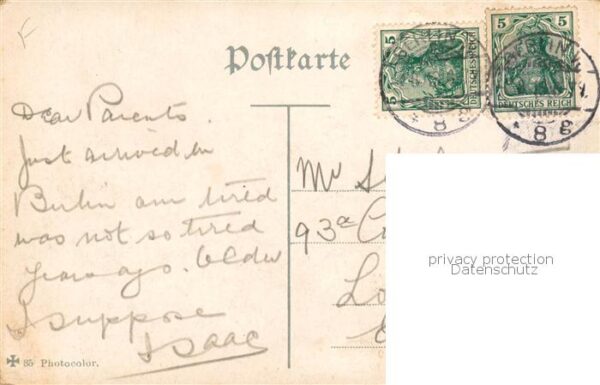 Postkarte
5
5
DEUTSCHES REICH
DEUTSCHES REICH
BERLIN
BERLIN
8
8
Dear Parents.
Just arrived in
Berlin am tired
was not so tired
years ago. Older
I suppose
Isaac
Mr
93a
Lo
privacy protection
Datenschutz
85 Photocolor.